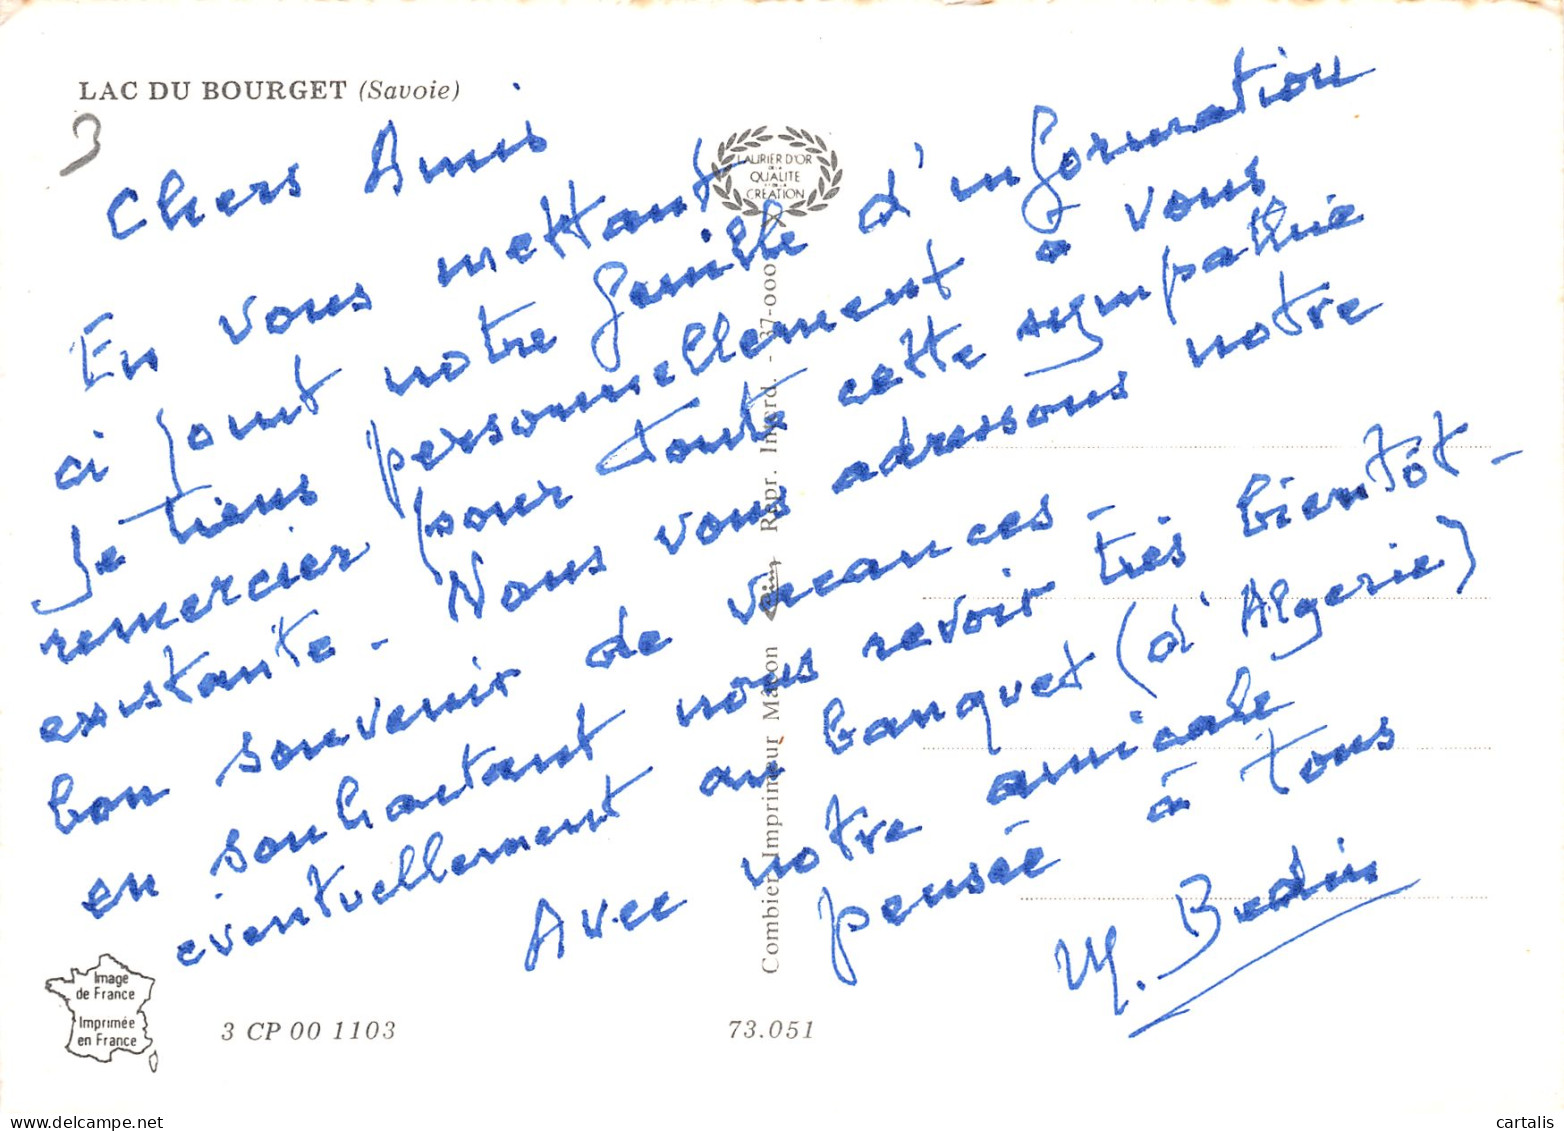 LAC DU BOURGET (Savoie)
3
LAURIER D'OR
DE LA
QUALITE
ET DE LA
CREATION
Chers Amis
En vous mettant
ci joint notre feuille d'information
Je tiens personnellement à vous
remercier pour toute cette sympathie
existante - Nous vous adressons notre
bon souvenir de vacances -
en souhaitant nous revoir très bientôt -
éventuellement au banquet (d'Algerie)
Avec notre amicale
pensée à tous
M. Bedin
Combier Imprimeur Macon Repr. Interd. - 37-000
Image
de France
Imprimée
en France
3 CP 00 1103
73.051
delcampe.net
cartalis